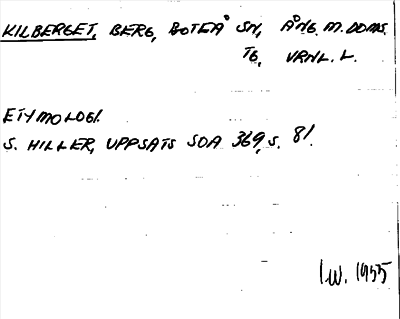 KILBERGET, BERG, BOTEÅ SN, ÅNG. M. DOMS.
TG, VRNL. L.
ETYMOLOGI.
S. HILLER, UPPSATS SOA 369, S. 81.
IW. 1955